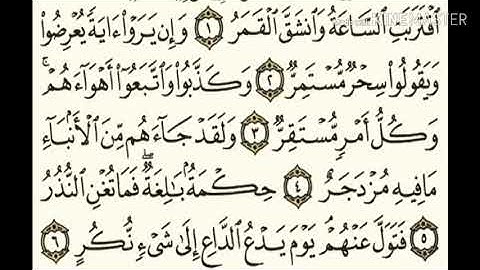 ٱقْتَرَبَتِ ٱلسَّاعَةُ وَٱنشَقَّ ٱلْقَمَرُ ١ وَإِن يَرَوْا۟ ءَايَةً يُعْرِضُوا۟
وَيَقُولُوا۟ سِحْرٌ مُّسْتَمِرٌّ ٢ وَكَذَّبُوا۟ وَٱتَّبَعُوٓا۟ أَهْوَآءَهُمْ ۚ
وَكُلُّ أَمْرٍ مُّسْتَقِرٌّ ٣ وَلَقَدْ جَآءَهُم مِّنَ ٱلْأَنۢبَآءِ
مَا فِيهِ مُزْدَجَرٌ ٤ حِكْمَةٌۢ بَـٰلِغَةٌ ۖ فَمَا تُغْنِ ٱلنُّذُرُ
٥ فَتَوَلَّ عَنْهُمْ ۘ يَوْمَ يَدْعُ ٱلدَّاعِ إِلَىٰ شَىْءٍ نُّكُرٍ ٦